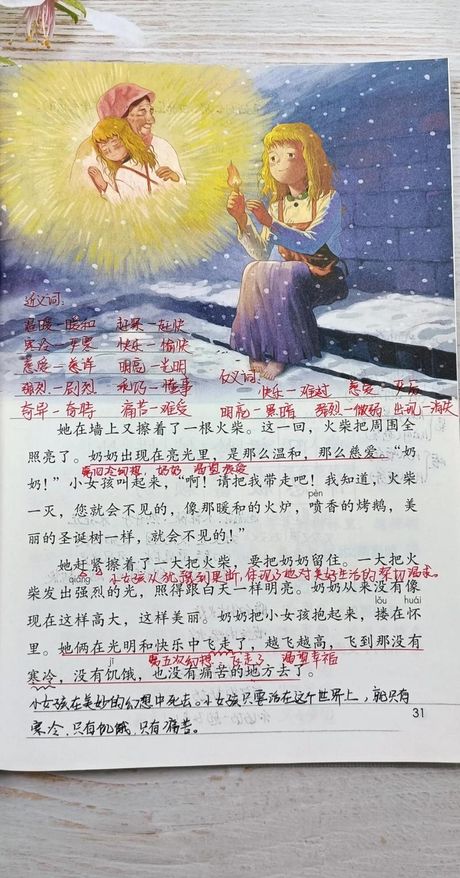 近义词:
温暖—暖和 赶紧—赶快
寒冷—严寒 快乐—愉快
慈爱—慈祥 明亮—光明
强烈—剧烈 乖巧—懂事
奇异—奇特 痛苦—难受
反义词:
快乐—难过 慈爱—严厉
明亮—黑暗 强烈—微弱 出现—消失
她在墙上又擦着了一根火柴。这一回,火柴把周围全
照亮了。奶奶出现在亮光里,是那么温和,那么慈爱。“奶
第四次幻想 奶奶 渴望疼爱
奶!”小女孩叫起来,“啊!请把我带走吧!我知道,火柴
pēn
一灭,您就会不见的,像那暖和的火炉,喷香的烤鹅,美
丽的圣诞树一样,就会不见的!”
她赶紧擦着了一大把火柴,要把奶奶留住。一大把火
qiáng
小女孩从犹豫到果断,体现了她对美好生活的紧切渴求。
柴发出强烈的光,照得跟白天一样明亮。奶奶从来没有像
lǒu huái
现在这样高大,这样美丽。奶奶把小女孩抱起来,搂在怀
里。她俩在光明和快乐中飞走了,越飞越高,飞到那没有
jī
第五次幻想 飞走了 渴望幸福
寒冷,没有饥饿,也没有痛苦的地方去了。
小女孩在美妙的幻想中死去。小女孩只要活在这个世界上,就只有
寒冷,只有饥饿,只有痛苦。
31